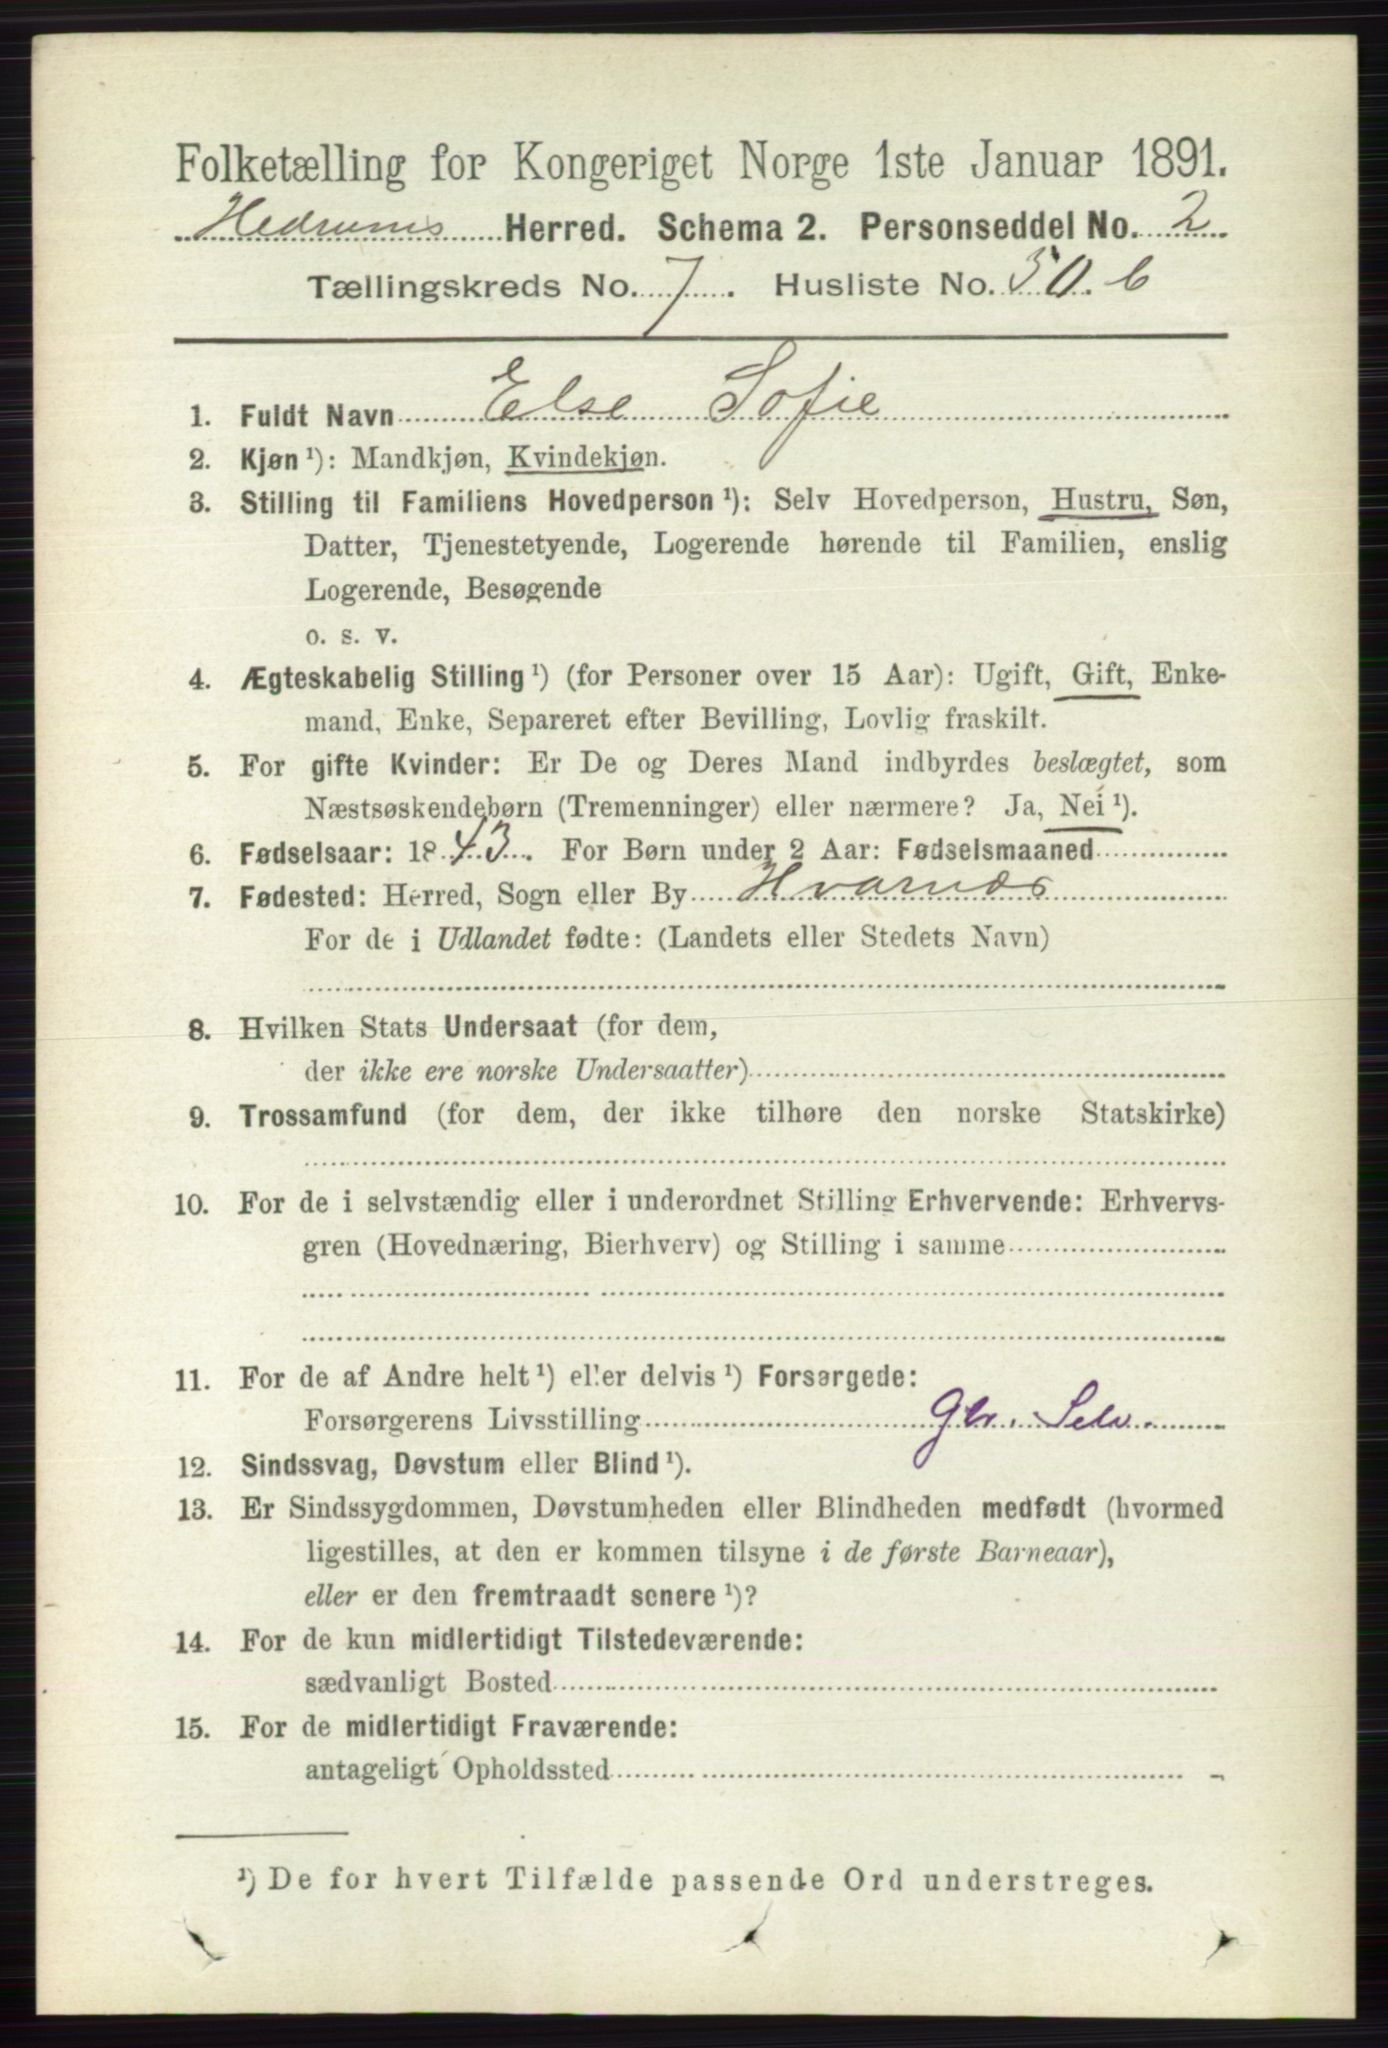 Folketælling for Kongeriget Norge 1ste Januar 1891.
Hedrums Herred. Schema 2. Personseddel No. 2
Tællingskreds No. 7. Husliste No. 50. b
1. Fuldt Navn Else Sofie
2. Kjøn ¹): Mandkjøn, Kvindekjøn.
3. Stilling til Familiens Hovedperson ¹): Selv Hovedperson, Hustru, Søn,
Datter, Tjenestetyende, Logerende hørende til Familien, enslig
Logerende, Besøgende
o. s. v.
4. Ægteskabelig Stilling ¹) (for Personer over 15 Aar): Ugift, Gift, Enke-
mand, Enke, Separeret efter Bevilling, Lovlig fraskilt.
5. For gifte Kvinder: Er De og Deres Mand indbyrdes beslægtet, som
Næstsøskendebørn (Tremenninger) eller nærmere? Ja, Nei ¹).
6. Fødselsaar: 1843. For Børn under 2 Aar: Fødselsmaaned
7. Fødested: Herred, Sogn eller By Hvarnæs
For de i Udlandet fødte: (Landets eller Stedets Navn)
8. Hvilken Stats Undersaat (for dem,
der ikke ere norske Undersaatter)
9. Trossamfund (for dem, der ikke tilhøre den norske Statskirke)
10. For de i selvstændig eller i underordnet Stilling Erhvervende: Erhvervs-
gren (Hovednæring, Bierhverv) og Stilling i samme
11. For de af Andre helt ¹) eller delvis ¹) Forsørgede:
Forsørgerens Livsstilling Gbr. Selv.
12. Sindssvag, Døvstum eller Blind ¹).
13. Er Sindssygdommen, Døvstumheden eller Blindheden medfødt (hvormed
ligestilles, at den er kommen tilsyne i de første Barneaar),
eller er den fremtraadt senere ¹)?
14. For de kun midlertidigt Tilstedeværende:
sædvanligt Bosted
15. For de midlertidigt Fraværende:
antageligt Opholdssted
¹) De for hvert Tilfælde passende Ord understreges.